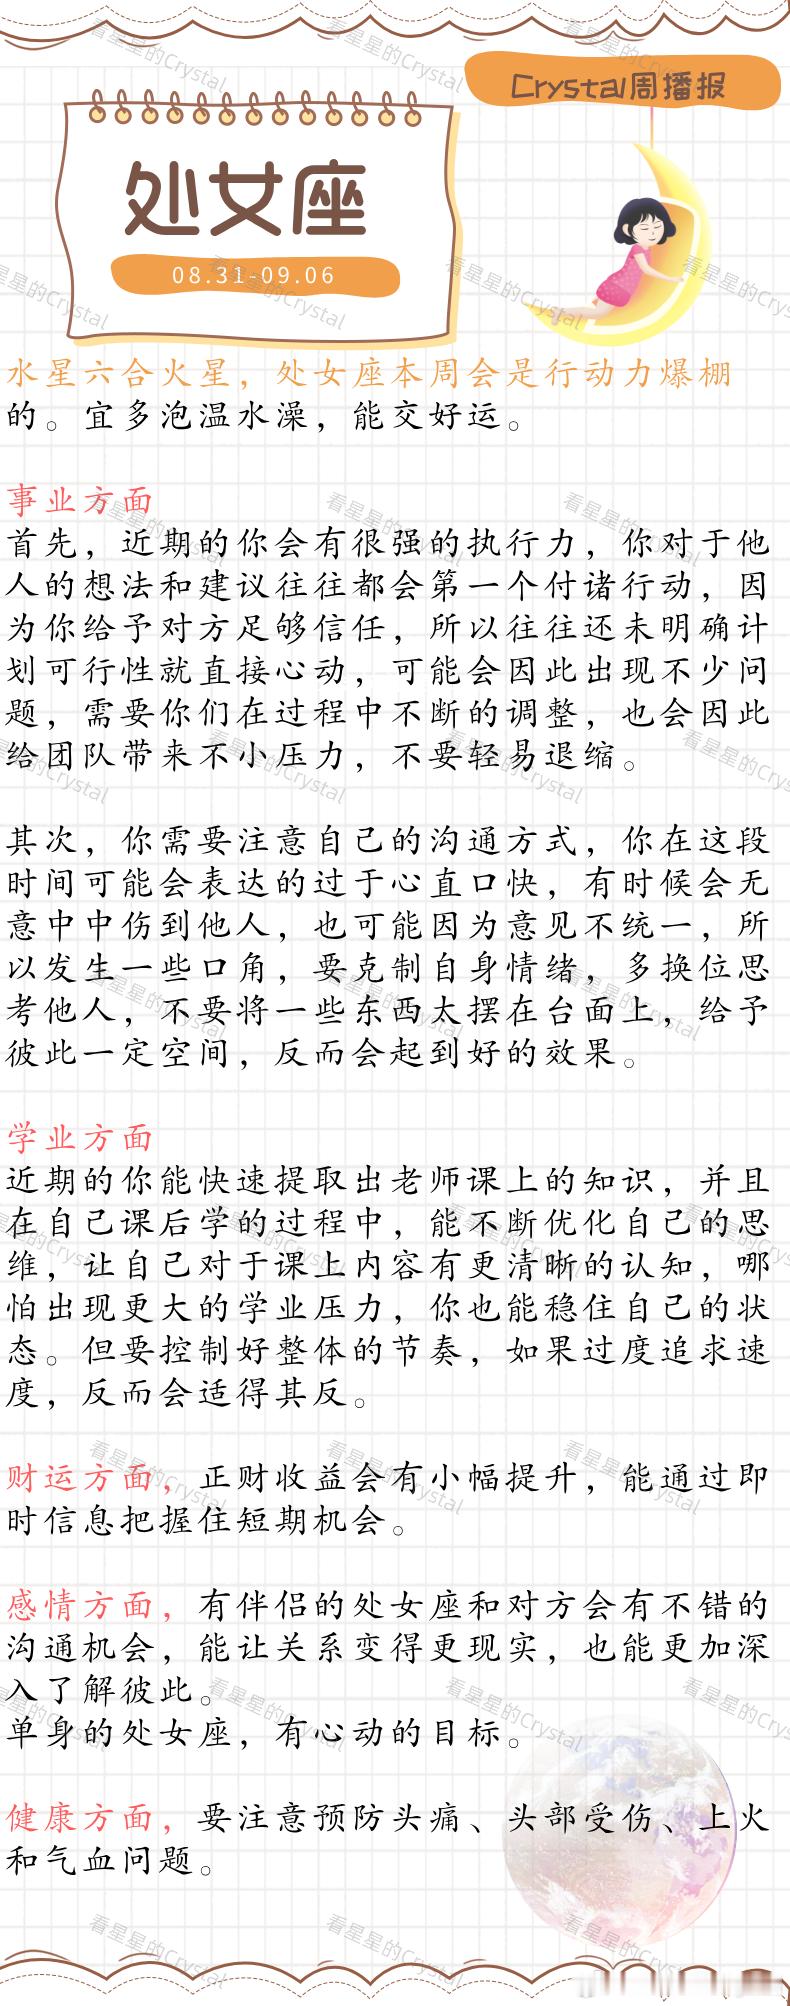 Crystal周播报
处女座
08.31-09.06
水星六合火星，处女座本周会是行动力爆棚
的。宜多泡温水澡，能交好运。
事业方面
首先，近期的你会有很强的执行力，你对于他
人的想法和建议往往都会第一个付诸行动，因
为你给予对方足够信任，所以往往还未明确计
划可行性就直接心动，可能会因此出现不少问
题，需要你们在过程中不断的调整，也会因此
给团队带来不小压力，不要轻易退缩。
其次，你需要注意自己的沟通方式，你在这段
时间可能会表达的过于心直口快，有时候会无
意中中伤到他人，也可能因为意见不统一，所
以发生一些口角，要克制自身情绪，多换位思
考他人，不要将一些东西太摆在台面上，给予
彼此一定空间，反而会起到好的效果。
学业方面
近期的你能快速提取出老师课上的知识，并且
在自己课后学的过程中，能不断优化自己的思
维，让自己对于课上内容有更清晰的认知，哪
怕出现更大的学业压力，你也能稳住自己的状
态。但要控制好整体的节奏，如果过度追求速
度，反而会适得其反。
财运方面，正财收益会有小幅提升，能通过即
时信息把握住短期机会。
感情方面，有伴侣的处女座和对方会有不错的
沟通机会，能让关系变得更现实，也能更加深
入了解彼此。
单身的处女座，有心动的目标。
健康方面，要注意预防头痛、头部受伤、上火
和气血问题。
看星星的Crystal